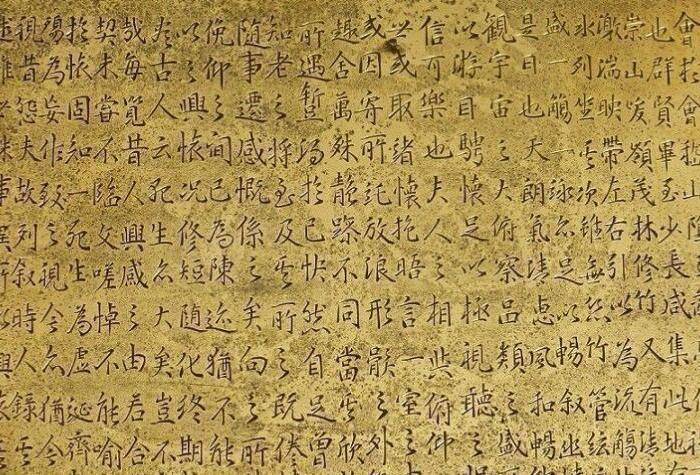 會於會稽山陰
也群賢畢至少長咸集此地
崇山峻嶺茂林修竹又有清
激湍映帶左右引以為流觴
水列坐其次雖無絲竹管絃
盛一觴一詠亦足以暢敘幽
是日也天朗氣清惠風和暢
觀宇宙之大俯察品類之盛
以遊目騁懷足以極視聽之
信可樂也夫人之相與俯仰
世或取諸懷抱晤言一室之
或因寄所託放浪形骸之外
趣舍萬殊靜躁不同當其欣
所遇暫得於己快然自足曾
知老之將至及其所之既倦
隨事遷感慨係之矣向之所
俛仰之間已為陳迹猶不能
以之興懷況修短隨化終期
盡古人云死生亦大矣豈不
哉每覽昔人興感之由若合
契未嘗不臨文嗟悼不能喻
於懷固知一死生為虛誕齊
殤為妄作後之視今亦猶今
視昔悲夫故列敘時人錄其
述雖世殊事異所以興懷